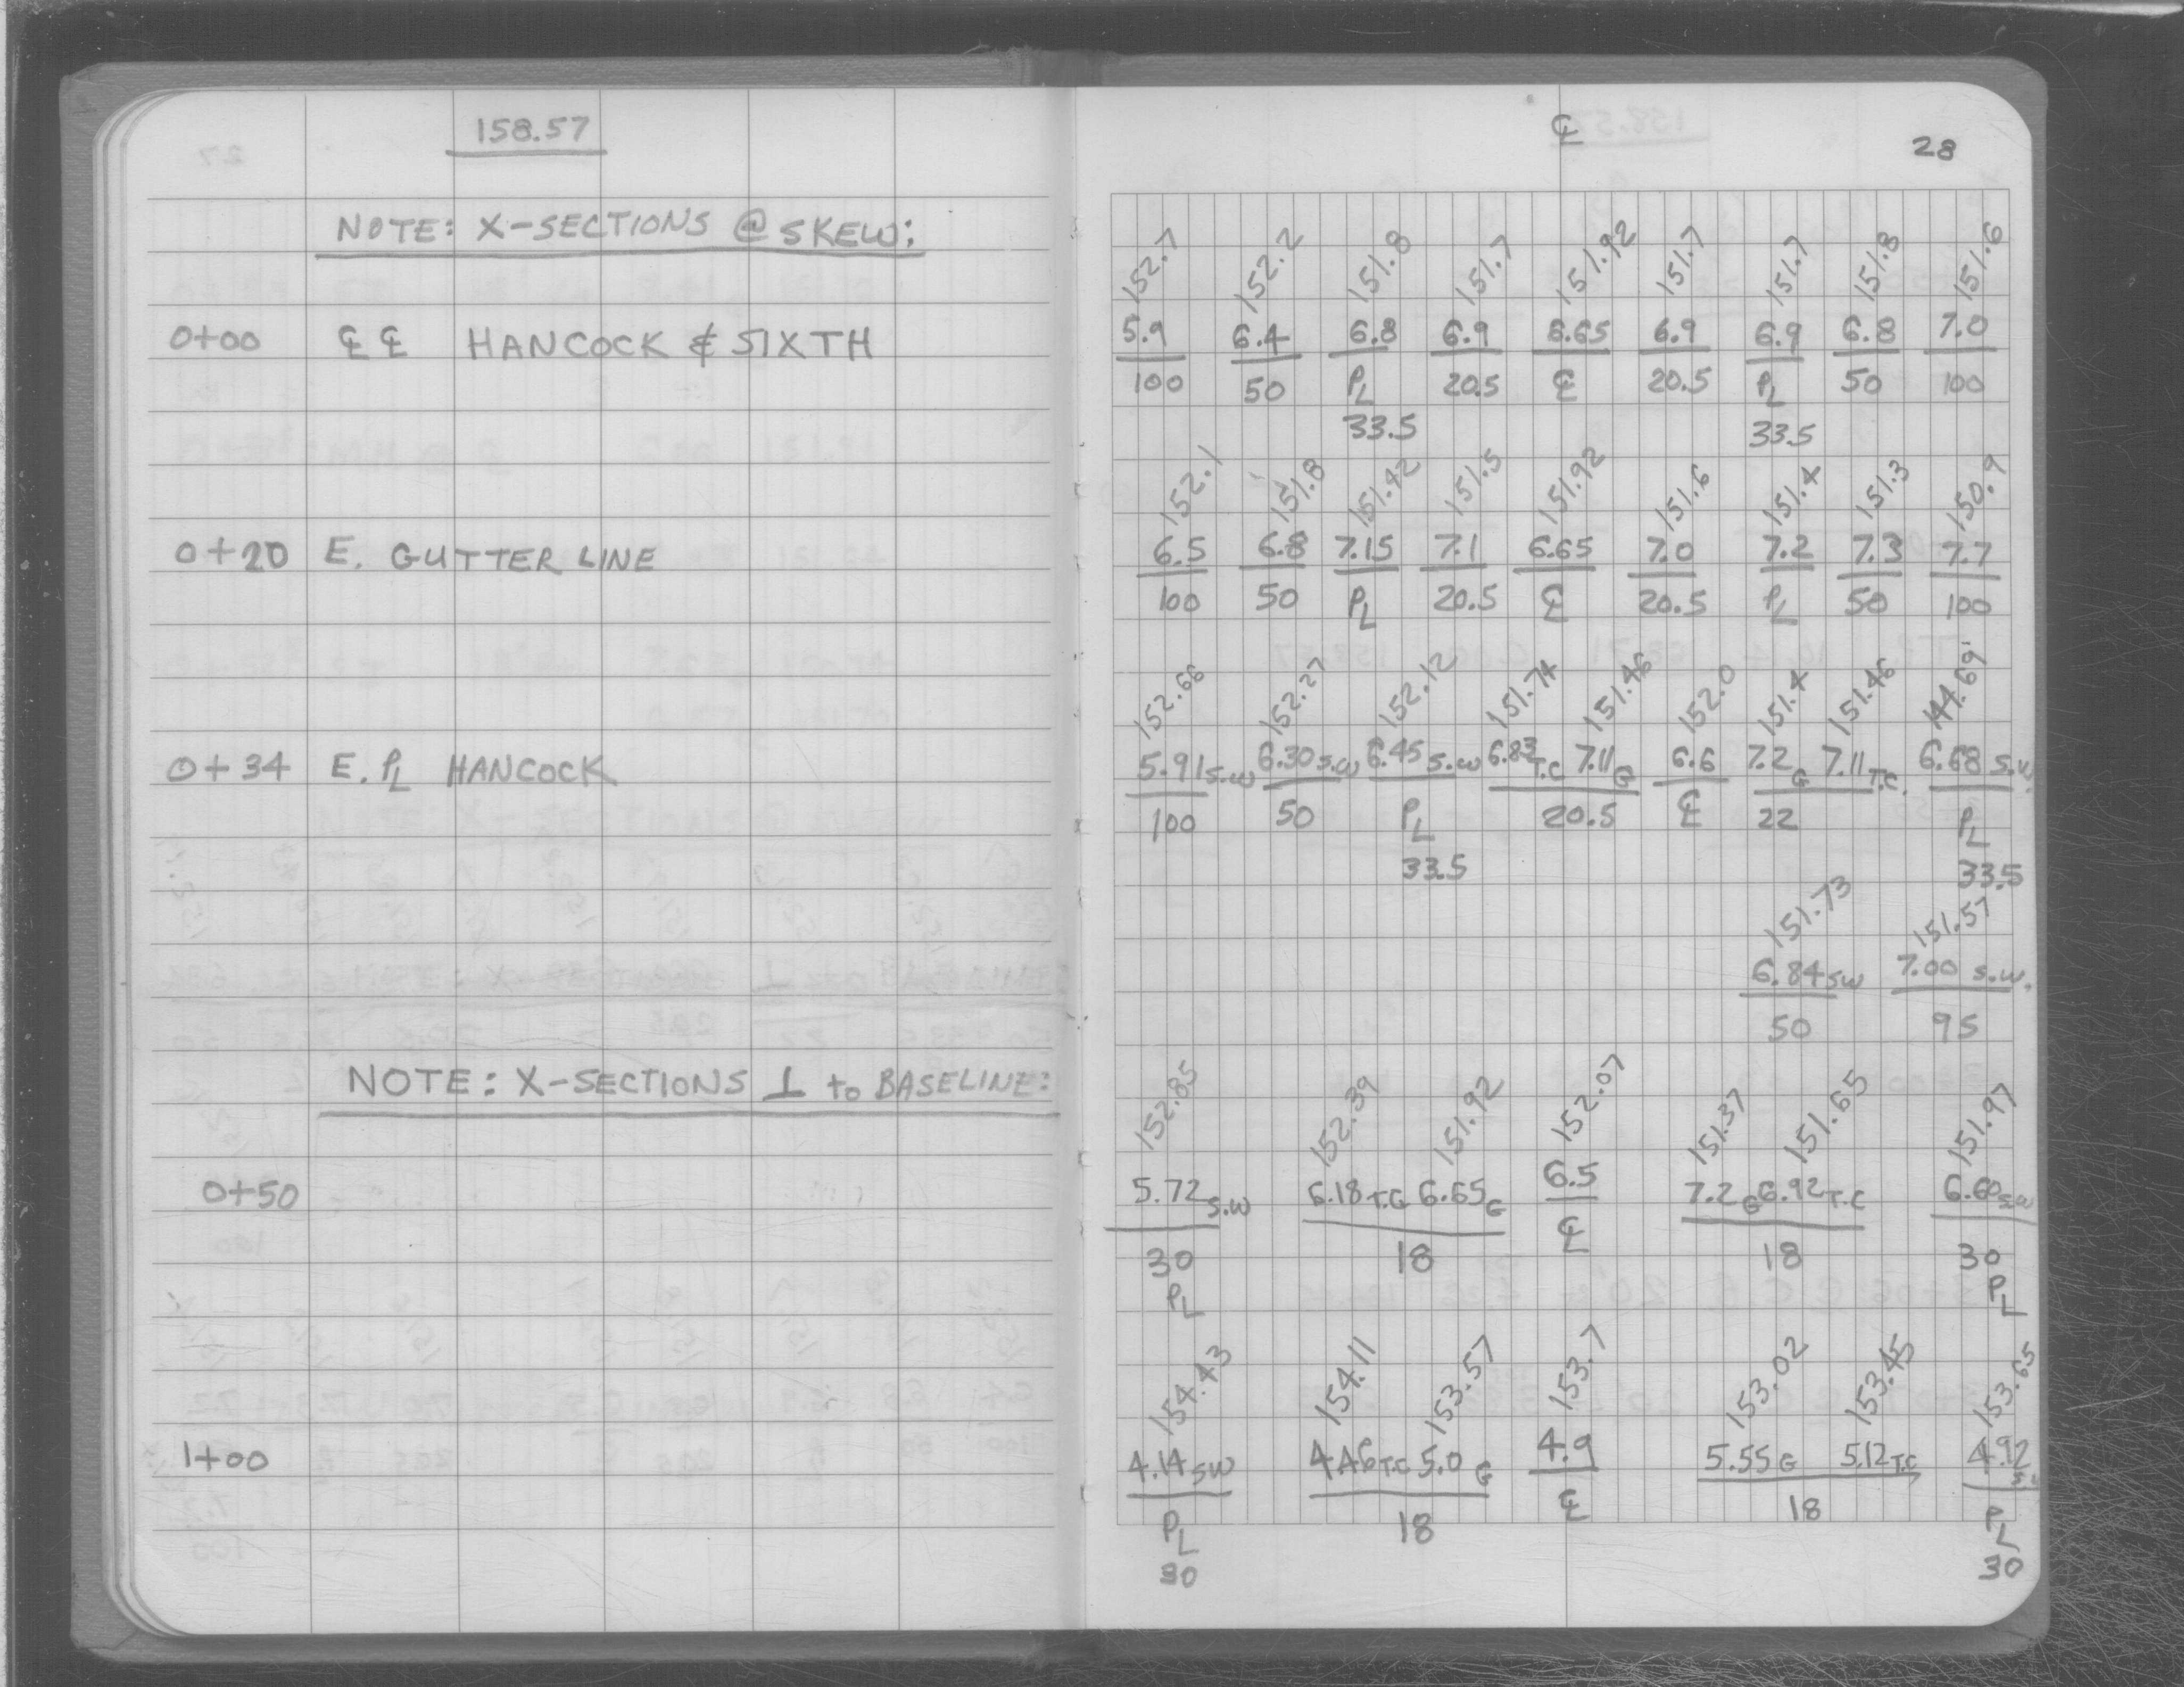 158.57
NOTE: X-SECTIONS @ SKEW:
0+00 ℄ ℄ HANCOCK & SIXTH
0+20 E. GUTTER LINE
0+34 E. PL HANCOCK
NOTE: X-SECTIONS ⊥ to BASELINE:
0+50
1+00
℄ 28
152.7 152.2 151.8 151.7 151.92 151.7 151.7 151.8 151.6
5.9 6.4 6.8 6.9 6.65 6.9 6.9 6.8 7.0
100 50 PL 20.5 ℄ 20.5 PL 50 100
33.5 33.5
152.1 151.8 151.42 151.5 151.92 151.6 151.4 151.3 150.9
6.5 6.8 7.15 7.1 6.65 7.0 7.2 7.3 7.7
100 50 PL 20.5 ℄ 20.5 PL 50 100
152.66 152.27 152.12 151.74 151.46 152.0 151.4 151.46
5.91 S.W 6.30 S.W 6.45 S.W 6.83 T.C 7.11 G 6.6 7.2 G 7.11 T.C. 6.68 S.W.
100 50 PL 20.5 ℄ 22 PL
33.5 33.5
151.73 151.57
6.84 SW 7.00 S.W.
50 95
152.85 152.39 151.92 152.07 151.37 151.65 151.97
5.72 S.W 6.18 T.C 6.65 G 6.5 7.2 G 6.92 T.C 6.60 SW
30 18 ℄ 18 30
PL PL
154.43 154.11 153.57 153.7 153.02 153.45 153.65
4.14 SW 4.46 T.C 5.0 G 4.9 5.55 G 5.12 T.C 4.92
PL 18 ℄ 18 PL
30 30